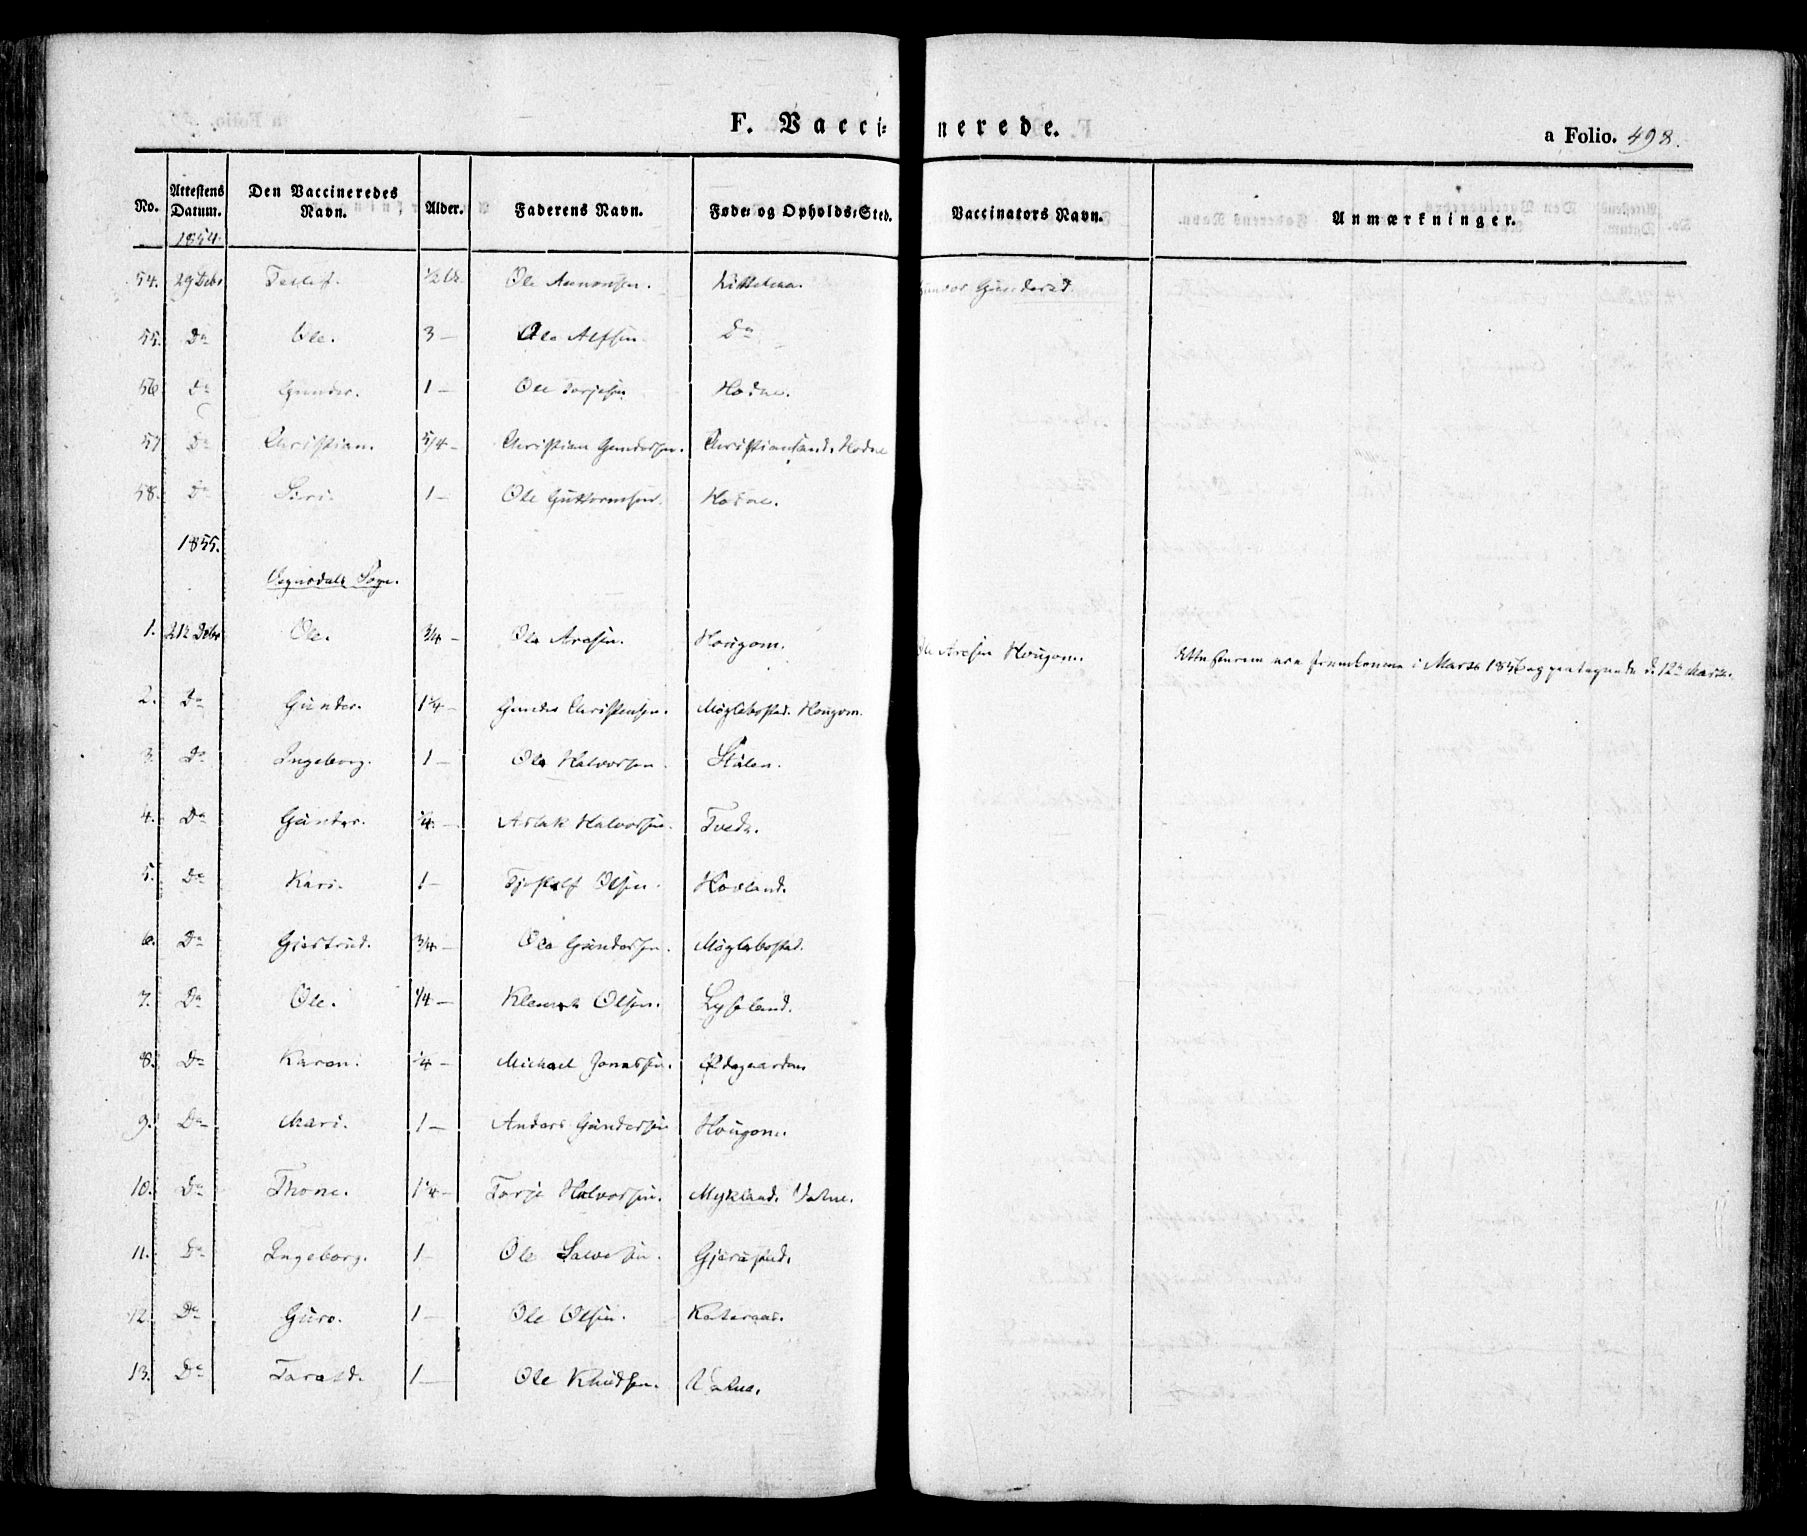 F. Vacci- nerede.
a Folio. 498.
No. Attestens Datum. Den Vaccineredes Navn. Alder. Faderens Navn. Føde- og Opholds-Sted. Vaccinators Navn. Anmærkninger.
1854.
54. 29 Debr ½ Ole Aanonsen. Gunder
55. Da Ole. 3 — Ole Alfsen. Da
56 Da Gunder. 1 — Ole Torjesen Hodne.
57 Da Christian. 5/4 — Christian Gundersen. Christiansand. Hodne
58. Da Siri. 1 — Ole Guttormsen. Hodne.
1855.
Vegusdals Sogn.
1. 21de Debr Ole. ¾ — Ole Aresen. Hougom. Ole Aresen Hougom. i Marts 1856 og d. 12te Marts.
2. Da Gunder. 1¼ — Gunder Christensen. Møglebostad. Hougom.
3. Da Ingeborg. 1 — Ole Halvorsen. Stålen.
4. Da Gunder. ¼ — Aslak Halvorsen. Tvede.
5. Da Kari. 1 — Olsen. Hovland.
6. Da Giertrud. ¾ — Ole Gundersen. Møglebostad.
7. Da Ole. ¼ — Klemet Olsen. Lyseland.
8. Da Karen. ¼ — Michael Jonassen. Ødegaarden
9. Da Mari. 1 — Anders Gundersen Hougom.
10. Da Thone. 1¼ — Torje Halvorsen. Mykland. Vatne.
11. Da Ingeborg. 1 — Ole Salvesen. Gjerustad.
12. Da Guro. 1 — Ole Olsen. Kateraas.
13. Da Tarald. 1 — Ole Knudsen. Vatne.